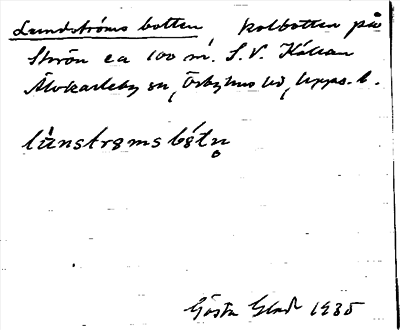 Lundströms botten, kolbotten på
Strön ca 100 m. S.V. Källan
Älvkarleby sn, Örbyhus hd, Upps. l.
lunstrømsbötn̥
Gösta Glad 1935